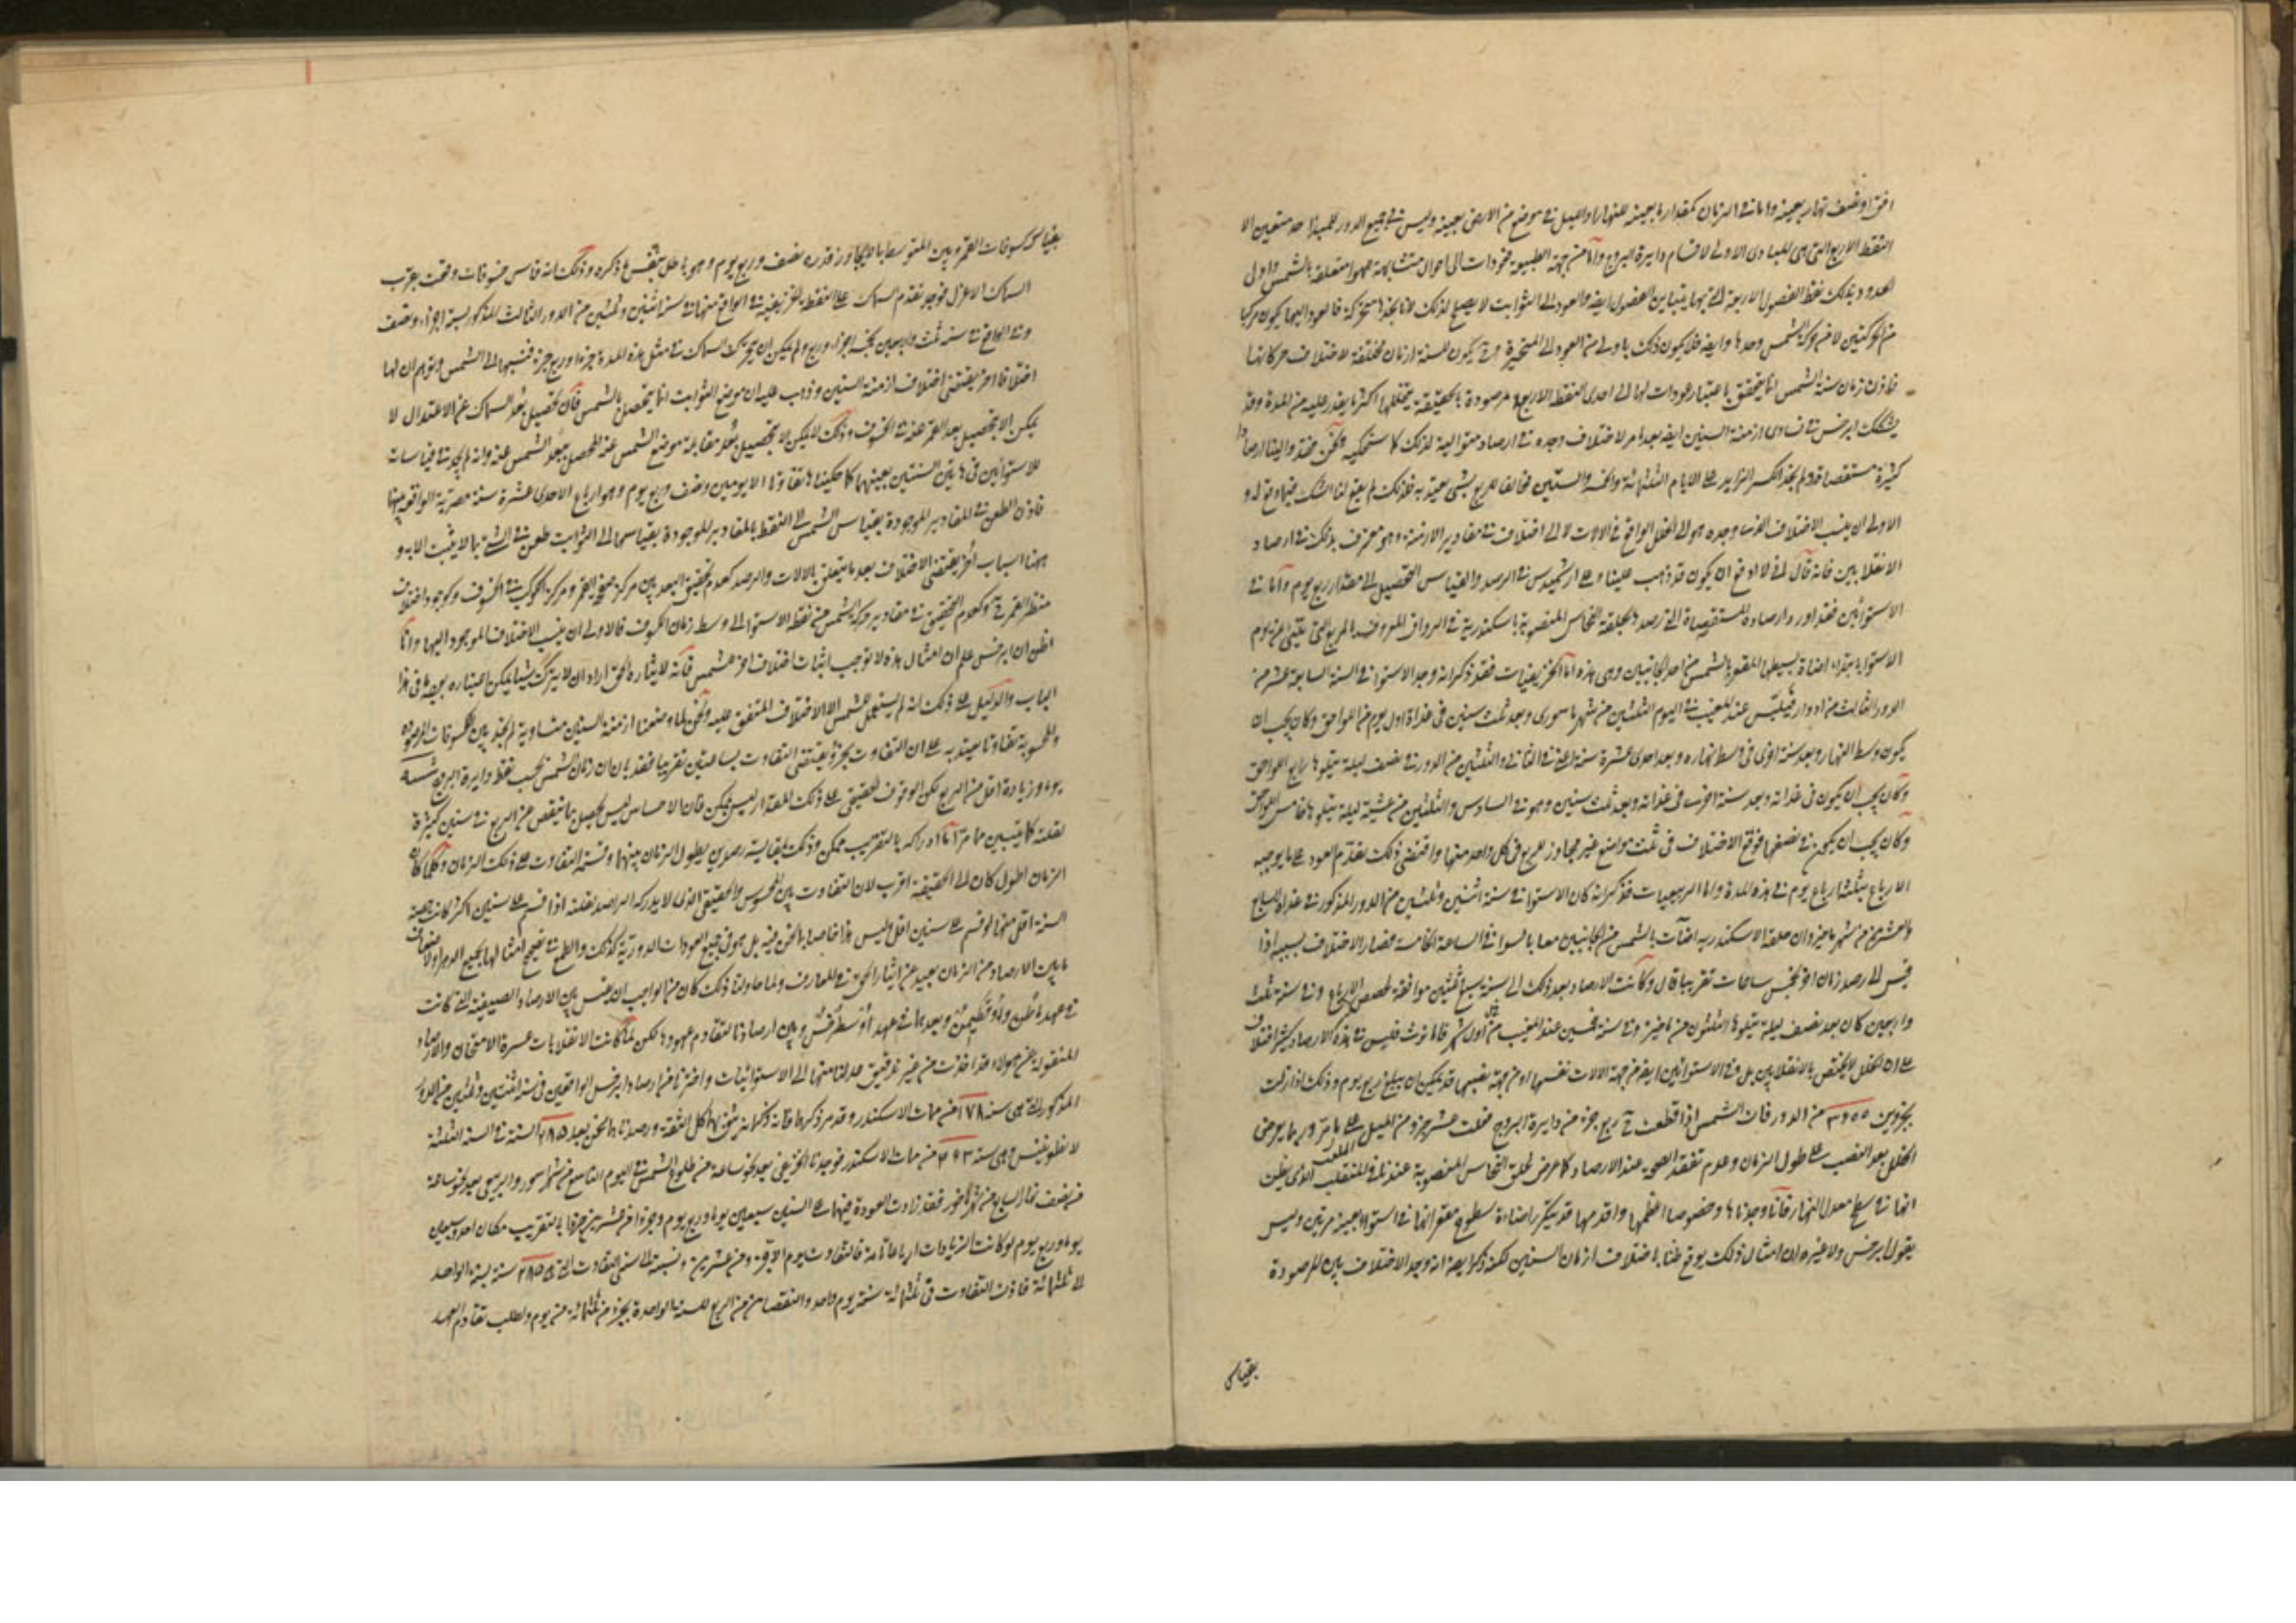 افق او نصف نهار بعينه واما في الزمان كمقدار ما بعينه للنهار او الليل في موضع من الارض بعينه وليس في جميع الدور للمبدأ حد متعين الا
النقط الاربع التي هي المبادي الاولى لاقسام دايرة البروج واما من جهة الطبيعة فعودات الى احوال متشابهة جهوا متعلقة بالشمس واول
الحدود بذلك نقط الفصول الاربعة التي بها يتباين الفصول ايضا والعود الى الثوابت لا يصلح لذلك لانا نجدها متحركة فالعود اليها يكون مركبا
من الحركتين لا من حركة الشمس وحدها وايضا فلا يكون ذلك باولى من العود الى المتحيرة وح يكون للسنة ازمان مختلفة لاختلاف حركاتها
فاذن زمان سنة الشمس انما يتحقق باعتبار عودات لها الى احدى النقط الاربع مرصودة بالحقيقة يتخللها اكثر ما يقدر عليه من المدة وقد
يشكك ابرخس في تساوي ازمنة السنين ايضا بعد امر لاختلاف وجده في ارصاد متوالية لذلك كما سنحكيه ونحن
كثيرة مستقصاة ولم نجد الكسر الزايد على الايام الثلثمائة والخمسة والستين مخالفا للربع بشيء يعتد به فلذلك لم يبق لنا الشك فيها وقوله و
الاولى ان ينسب الاختلاف الذي وجده هو الى الخلل الواقع في الالات لا الى اختلاف في مقادير الازمنة وهو معترف بذلك في ارصاد
الانقلابين فانه قال اني لا ادفع ان يكون قد ذهب علينا وعلى ارشميدس في الرصد والقياس التحصيل الى مقدار ربع يوم واما في
الاستوائين فقد اورد ارصاده المستقصاة التي رصد بالحلقة النحاس المنصوبة باسكندرية في الرواق المعروف بالمربع التي يتبين يوم
الاستوا بابتداء اضاءة بسيطها المقعر بالشمس من احد الجانبين وهي هذه اما الخريفيات فقد ذكر انه وجد الاستوا في السنة السابعة عشر من
الدور الثالث من ادوار فيلبس عند المغيب في اليوم الثلثين من شهر ماسوري وبعد ثلث سنين في غداة اول يوم من اللواحق وكان يجب ان
يكون وسط النهار وبعد سنة اخرى في وسط نهاره وبعد احدى عشرة سنة اعني في الثانية والثلثين من الدور في نصف ليلة يتلوها رابع اللواحق
وكان يجب ان يكون في غداته وبعد سنة اخرى في غداته وبعد ثلث سنين وهو في السادس والثلثين من عشية ليلة يتلوها خامس اللواحق
وكان يجب ان يكون في نصفها فوقع الاختلاف في ثلث مواضع غير مجاوز للربع في كل واحد منها واقتضى ذلك تقدم العود على ما يوجبه
الارباع بثلثة ارباع يوم في هذه المدة واما الربيعيات فذكر انه كان الاستوا في سنة اثنين وثلثين من الدور المذكور في غداة السابع
والعشرين من شهر ماخير وان حلقة الاسكندرية اضآت بالشمس من الجانبين معا بالسوا في الساعة الخامسة فصار الاختلاف بسببه اذا
قيس الى رصد زمان اخر نحو خمس ساعات تقريبا قال وكانت الارصاد بعد ذلك الى سنة سبع وثلثين موافقة لحصص الارباع وفي سنة ثلث
واربعين كان بعد نصف ليلة يتلوها الثلثون من ماخير وفي سنة خمسين عند المغيب من اول شهر فامانوث فليس في هذه الارصاد كثير اختلاف
على ان الخلل لا يختص بالانقلابين بل وفي الاستوائين ايضا من جهة الالات نفسها او من جهة نصبها قد يمكن ان يبلغ ربع يوم وذلك اذا زلت
بجزء من ٣٦٠٠ من الدور فان الشمس اذا قطعت ربع جزء من دايرة البروج قطعت عشر جزء من الميل على ما مر وربما يعرض
الخلل بعد النصب على طول الزمان وعدم تفقد الصحة عند الارصاد كما عرض لحلق النحاس المنصوبة عندنا في الملعب الذي يظن
انها في سطح معدل النهار فانا وجدناها وخصوصا اعظمها واقدمها قد يتكرر اضاءة سطوح مقعراتها في استواء بعينه مرتين وليس
يقول ابرخس ولا غيره ان امثال ذلك يوقع ظنا باختلاف ازمان السنين لكنه ذكر ايضا انه وجد الاختلاف بين المرصودة
بقياس
بقياس كسوفات القمر وبين المتوسط بما لا يجاوز قدره نصف وربع يوم وهو باطل بنفس ما ذكره وذلك انه قاس خسوفات وقعت بقرب
السماك الاعزل فوجد تقدم السماك على النقطة الخريفية في الواقع منها في سنة اثنين وثلثين من الدور الثالث المذكور ستة اجزاء ونصف
وفي الواقع في سنة ثلث واربعين خمسة اجزاء وربع ولم يمكن ان يتحرك السماك في مثل هذه المدة جزءا وربع جزء فنسبها الى الشمس وتوهم ان لها
اختلافا اخر يقتضي اختلاف ازمنة السنين وذهب عليه ان موضع الثوابت انما يتحصل بالشمس فان تحصيل بعد السماك عن الاعتدال لا
يمكن الا بتحصيل بعد القمر عنه في الخسوف وذلك لا يمكن الا بتحصيل بعد مقابلة موضع الشمس عنه المحصل ببعد الشمس عنه وانه لم يجد في قياسات
الاستوائين في هاتين السنتين بعينهما كما حكينا تفاوتا الا يومين ونصف وربع يوم وهو ارباع الاحدى عشرة سنة مصرية الواقعة بينها
فاذن الطعن في المقادير الموجودة بقياس الشمس الى النقط بالمقادير الموجودة بقياسها الى الثوابت طعن في الشيء بما لا يثبت الا به و
ههنا اسباب اخر يقتضي الاختلاف بعد ما يتعلق بالالات والرصد كعدم تحقيق البعد بين مركز صفحة القمر ومركز الكوكب في الخسوف وكوجود اختلاف
منظر القمر وكعدم التحقيق في مقادير حركة الشمس من نقط الاستوا الى وسط زمان الكسوف فالاولى ان ينسب الاختلاف الموجود اليها وانا
اظن ان ابرخس علم ان امثال هذه لا توجب اثبات اختلاف اخر للشمس لكنه لايثاره الحق اراد ان لا يترك شيئا يمكن اعتباره بوجه في هذا
الباب والدليل على ذلك انه لم يستعمل للشمس الا الاختلاف المتفق عليه ونحن لما وضعنا ازمنة السنين متساوية لم نجد بين الكسوفات المرصودة
والمحسوبة تفاوتا يعتد به على ان التفاوت بجزء يقتضي التفاوت بساعتين تقريبا فقد بان ان زمان الشمس بحسب نقط دايرة البروج
يوما وزيادة اقل من الربع لكن الوقوف الحقيقي على ذلك المقدار ليس يمكن فان الاحساس ليس يحصل بما ينقص عن الربع في سنين كثيرة
لقلته كما يتبين مما مر اما ادراكه بالتقريب ممكن وذلك بمقايسة رصدين يطول الزمان بينهما وقسمة التفاوت على ذلك الزمان وكلما كان
الزمان اطول كان الى الحقيقة اقرب لان التفاوت بين المحسوس والحقيقي الذي لا يدركه الراصد لقلته اذا قسم على سنين اكثر كانت حصة
السنة اقل منها لو قسم على سنين اقل وليس هذا خاصا بما نحن فيه بل هو في جميع العودات الدورية كذلك والطمع في تصحيح امثالها بجميع الدهر ولاضعاف
ما بين الارصاد من الزمان بعيد عن ايثار الحق في المعارف ولما حاولنا ذلك كان من الواجب ان نقيس بين الارصاد الصيفية التي كانت
في عهد ماطن واوقطيمن وبعدهما في عهد ارسطرخس وبين ارصادنا لتقادم عهودها لكن لما كانت الانقلابات عسرة الامتحان والارصاد
المنقولة عن هؤلاء قد اخذت من غير تدقيق عدلنا منها الى الاستوائيات واخترنا من ارصاد ابرخس الواقعين في سنة اثنتين وثلثين من الدور
المذكور التي هي سنة ١٧٨ من ممات الاسكندر وقد مر ذكرها فانه ذكر انه يثق بها كل الثقة ورصدنا ما نحن بعد ٢٨٥ السنة في السنة الثالثة
لانطونينس وهي سنة ٤٦٣ من ممات الاسكندر فوجدنا الخريفي بعد نحو ساعة من طلوع الشمس في اليوم التاسع من شهر اسور والربيعي بعد نحو ساعة
من نصف نهار السابع من شهر باخور فقد زادت العودة فيهما على السنين سبعين يوما وربع يوم وجزءا من عشرين جزءا بالتقريب مكان احد وسبعين
يوما وربع يوم لو كانت الزيادات ارباعا تامة فالتفاوت يوم الا جزء من عشرين ونسبته الى سني التفاوت التي هي ٢٨٥ سنة نسبة الواحد
الى ثلثمائة فاذن التفاوت في ثلثمائة سنة يوم واحد والنقصان من الربع للسنة الواحدة بجزء من ثلثمائة من يوم ولطلب تقادم العهد